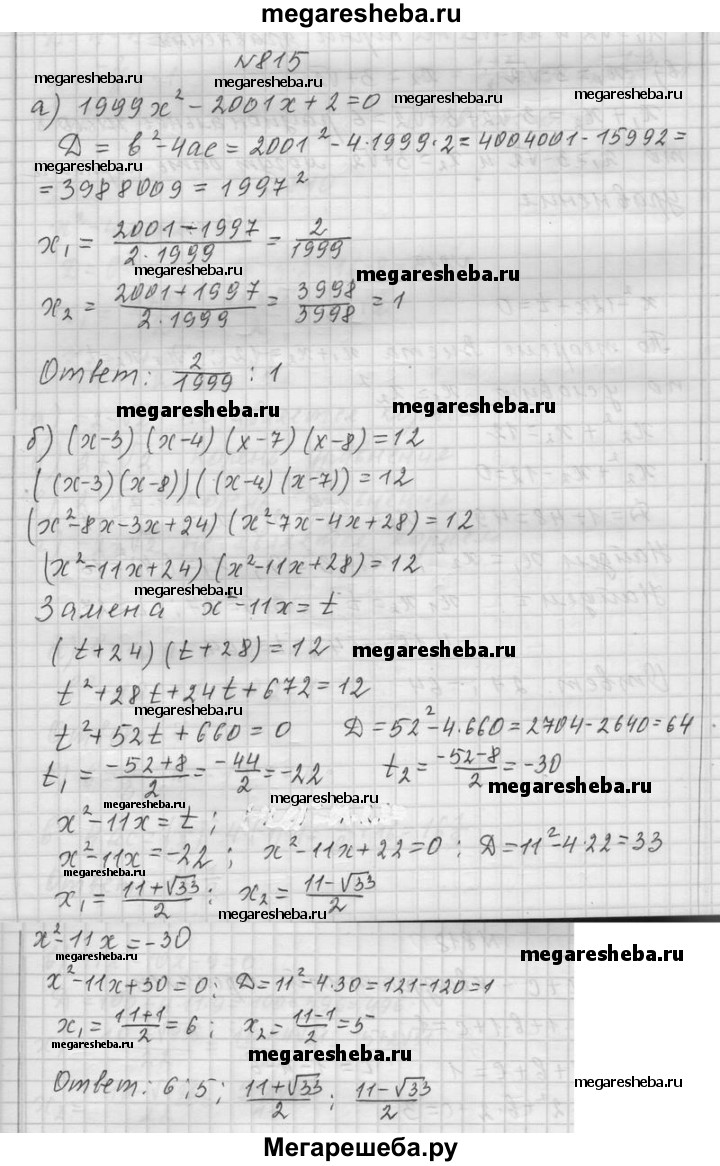 megaresheba.ru
N815
megaresheba.ru megaresheba.ru
а) 1999x² - 2001x + 2 = 0 megaresheba.ru
D = b² - 4ac = 2001² - 4·1999·2 = 4004001 - 15992 =
megaresheba.ru
= 3988009 = 1997²
x₁ = (2001 - 1997)/(2·1999) = 2/1999
megaresheba.ru megaresheba.ru
x₂ = (2001 + 1997)/(2·1999) = 3998/3998 = 1
megaresheba.ru
Ответ: 2/1999 ; 1
megaresheba.ru megaresheba.ru
б) (x-3) (x-4) (x-7) (x-8) = 12
((x-3)(x-8))((x-4)(x-7)) = 12
megaresheba.ru
(x²-8x-3x+24) (x²-7x-4x+28) = 12
(x²-11x+24) (x²-11x+28) = 12
megaresheba.ru
Замена x²-11x = t
(t+24) (t+28) = 12 megaresheba.ru
megaresheba.ru
t² + 28t + 24t + 672 = 12
megaresheba.ru
t² + 52t + 660 = 0 D = 52² - 4·660 = 2704 - 2640 = 64
t₁ = (-52+8)/2 = -44/2 = -22 t₂ = (-52-8)/2 = -30
megaresheba.ru
megaresheba.ru megaresheba.ru
x² - 11x = t;
x²-11x = -22 ; x²-11x+22 = 0 ; D = 11²-4·22 = 33
megaresheba.ru
x₁ = (11+√33)/2 ; x₂ = (11-√33)/2
megaresheba.ru
x²-11x = -30
megaresheba.ru
x²-11x+30 = 0; D = 11²-4·30 = 121-120 = 1
x₁ = (11+1)/2 = 6 ; x₂ = (11-1)/2 = 5
megaresheba.ru
megaresheba.ru
Ответ: 6 ; 5 ; (11+√33)/2 ; (11-√33)/2
megaresheba.ru
megaresheba.ru
Мегарешеба.ру